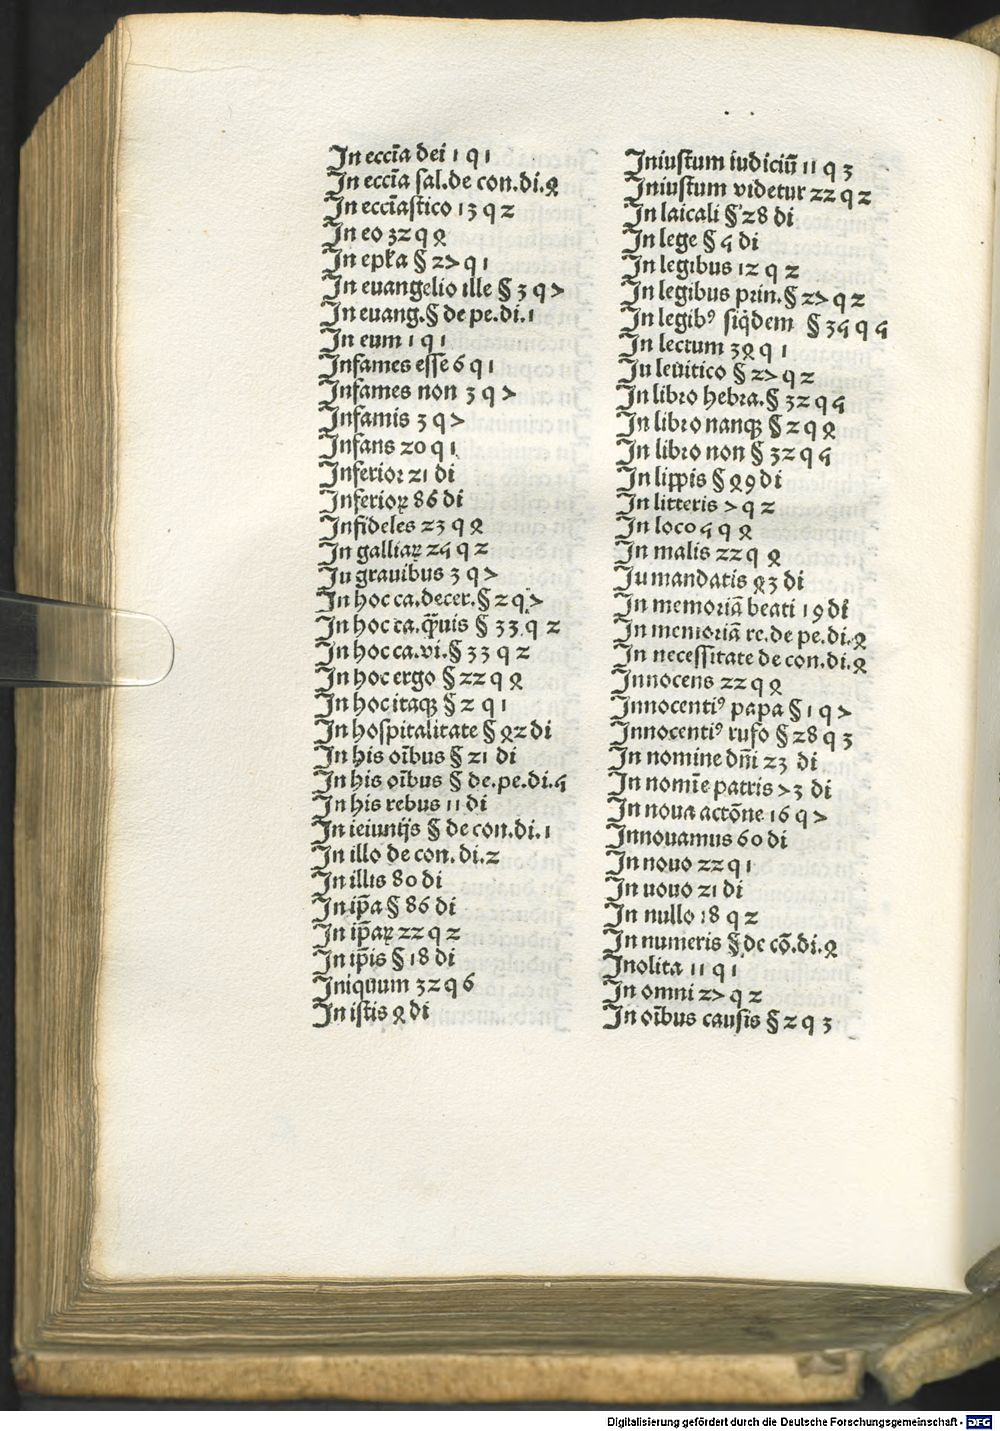 In eccl̄ia dei 1 q 1
In eccl̄ia sal.de con.di.4
In eccl̄iastico 13 q 2
In eo 32 q 4
In epl̄a § 27 q 1
In euangelio ille § 3 q 7
In euang.§ de pe.di.1
In eum 1 q 1
Infames esse 6 q 1
Infames non 3 q 7
Infamis 3 q 7
Infans 20 q 1
Inferior 21 di
Inferioꝝ 86 di
Infideles 23 q 4
In galliaꝝ 25 q 2
In grauibus 3 q 7
In hoc ca.decer.§ 2 q 7
In hoc ca.q̄̄uis § 33 q 2
In hoc ca.vi.§ 33 q 2
In hoc ergo § 22 q 4
In hoc itaqꝫ § 2 q 1
In hospitalitate § 42 di
In his oībus § 21 di
In his oībus § de.pe.di.5
In his rebus 11 di
In ieiunijs § de con.di.1
In illo de con.di.2
In illis 80 di
In ip̄a § 86 di
In ip̄aꝝ 22 q 2
In ip̄is § 18 di
Iniquum 32 q 6
In istis 4 di
Iniustum iudiciū 11 q 3
Iniustum videtur 22 q 2
In laicali § 28 di
In lege § 5 di
In legibus 12 q 2
In legibus prin.§ 27 q 2
In legibꝰ siq̄dem § 35 q 5
In lectum 34 q 1
Iu leuitico § 27 q 2
In libro hebra.§ 32 q 5
In libro nanqꝫ § 2 q 4
In libro non § 32 q 5
In lippis § 49 di
In litteris 7 q 2
In loco 5 q 4
In malis 22 q 4
Iu mandatis 43 di
In memoriā beati 19 di
In memoriā rc.de pe.di.4
In necessitate de con.di.4
Innocens 22 q 4
Innocentiꝰ papa § 1 q 7
Innocentiꝰ rufo § 28 q 3
In nomine dn̄i 23 di
In nomīe patris 73 di
In noua actōne 16 q 7
Innouamus 60 di
In nouo 22 q 1
In uouo 21 di
In nullo 18 q 2
In numeris § de cō.di.4
Inolita 11 q 1
In omni 27 q 2
In oībus causis § 2 q 3
Digitalisierung gefördert durch die Deutsche Forschungsgemeinschaft - DFG